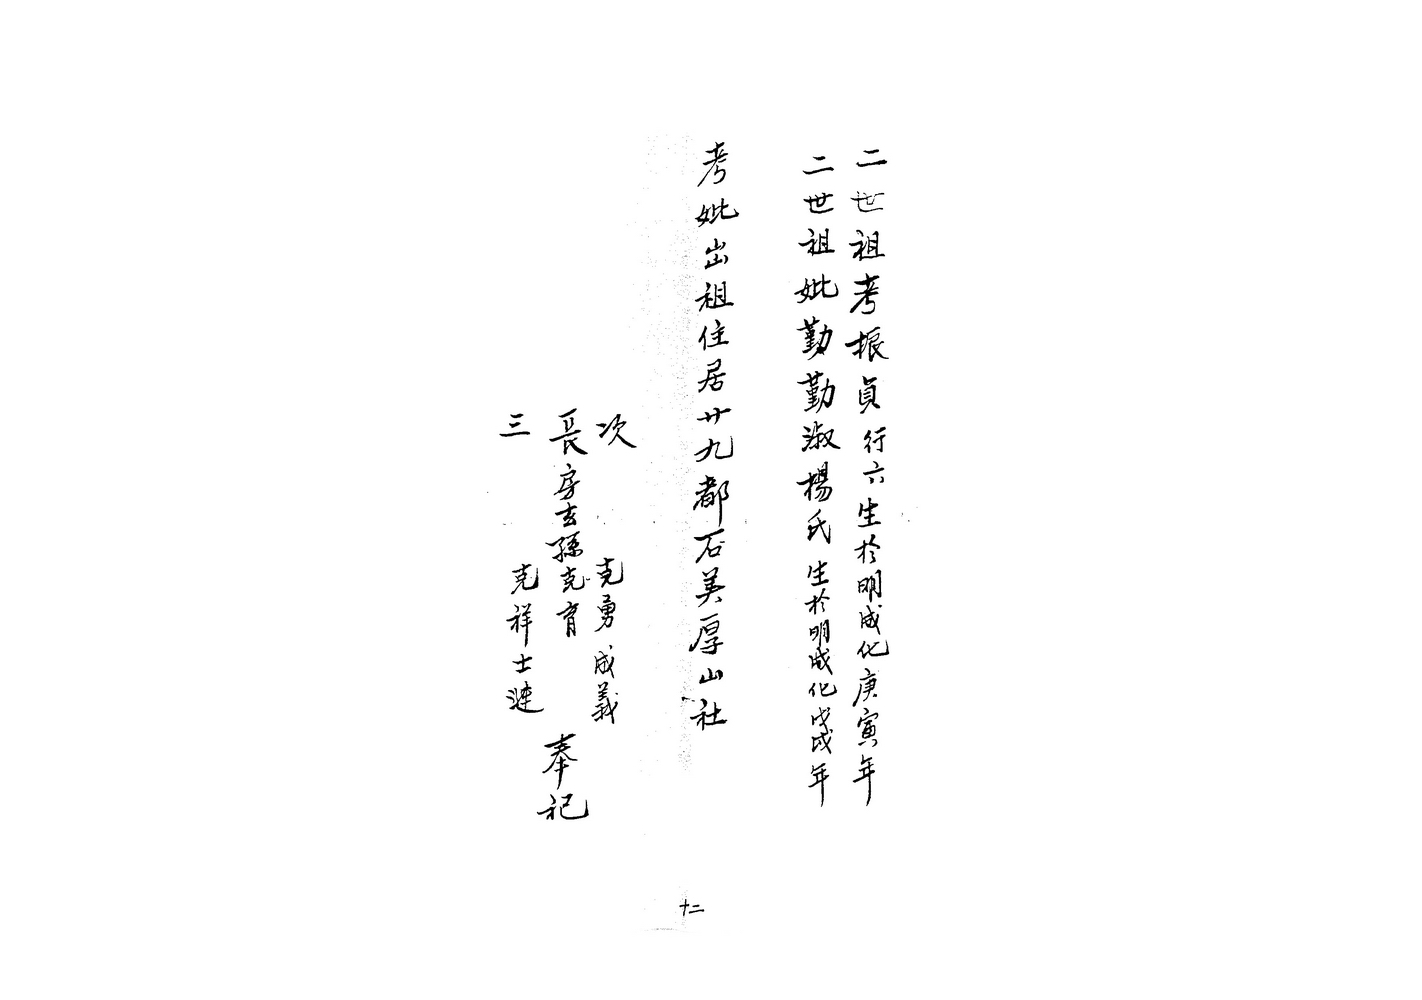 二世祖考振貞行六生於明成化庚寅年
二世祖妣勤勤淑楊氏生於明成化戊戌年
考妣出祖住居廿九都石美厚山社
次 克勇 成義
長房玄孫克育 奉祀
三 克祥 士漣
十二